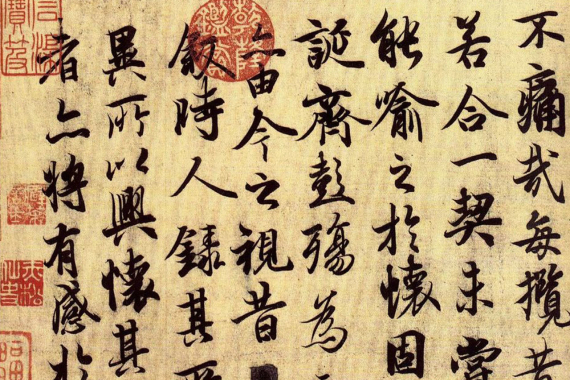 不痛哉每攬昔
若合一契未嘗
能喻之於懷固
誕齊彭殤為
亦由今之視昔
敘時人錄其所
異所以興懷其
者亦將有感於